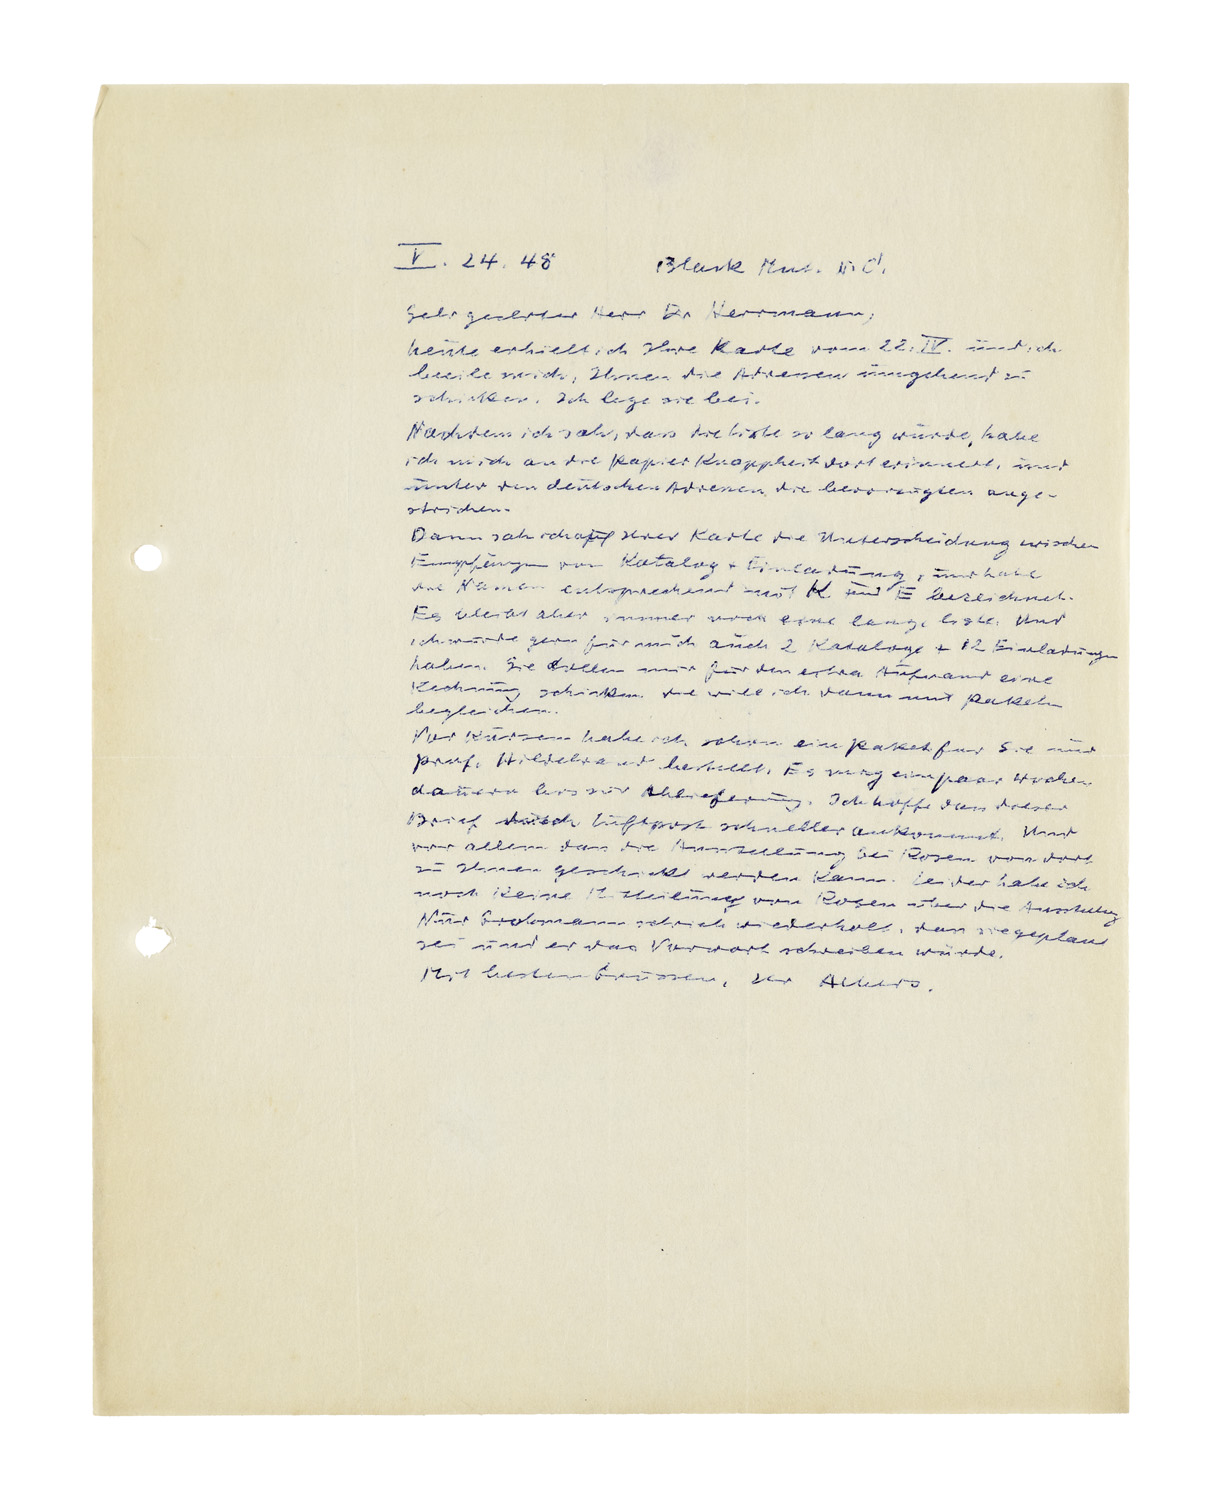 V. 24. 48 Black Mnt. N.C.
Sehr geehrter Herr Dr Herrmann,
heute erhielt ich Ihre Karte vom 22. IV. und ich
beeile mich, Ihnen die Adressen umgehend zu
schicken. Ich lege sie bei.
Nachdem ich sah, dass die Liste so lang würde, habe
ich mich an die Papier Knappheit dort erinnert, und
unter den deutschen Adressen die bevorzugten ange-
strichen.
Dann sah ich auf Ihrer Karte die Unterscheidung zwischen
Empfänger von Katalog + Einladung, und habe
die Namen entsprechend mit K und E bezeichnet.
Es bleibt aber immer noch eine lange Liste. Und
ich würde gern für mich auch 2 Kataloge + 12 Einladungen
haben. Sie sollen mir für den extra Aufwand eine
Rechnung schicken die will ich dann mit Paketen
begleichen.
Vor Kurzem habe ich schon ein Paket für Sie und
Prof. Hildebrandt bestellt. Es mag ein paar Wochen
dauern bis zur Ablieferung. Ich hoffe dass dieser
Brief durch Luftpost schneller ankommt. Und
vor allem dass die Ausstellung bei Rosen von dort
zu Ihnen geschickt werden kann. Leider habe ich
noch keine Mitteilung von Rosen über die Ausstellung
Nur Grohmann schrieb wiederholt, dass sie geplant
sei und er das Vorwort schreiben würde.
Mit besten Grüssen, Ihr Albers.